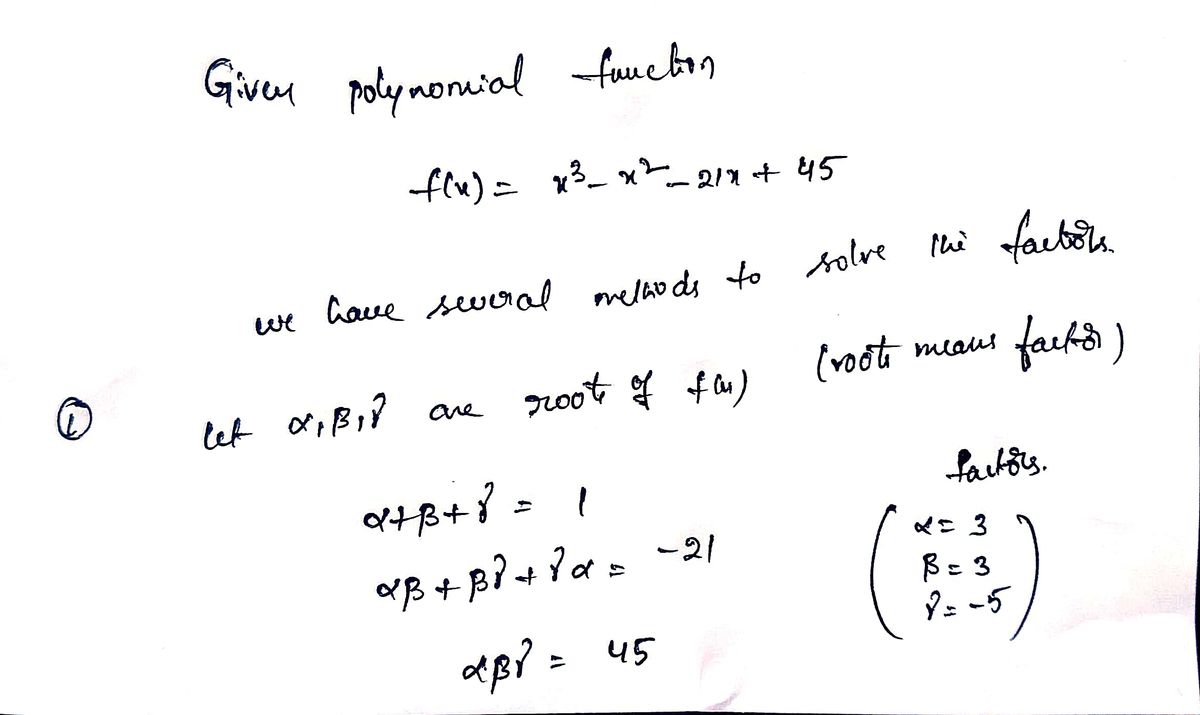 Given polynomial function
f(x) = x³ - x² - 21x + 45
we have several methods to solve the factors.
① let α, β, γ are root of f(x) (root means factor)
factors.
α+β+γ = 1
α = 3
αβ + βγ + γα = -21
β = 3
γ = -5
αβγ = 45